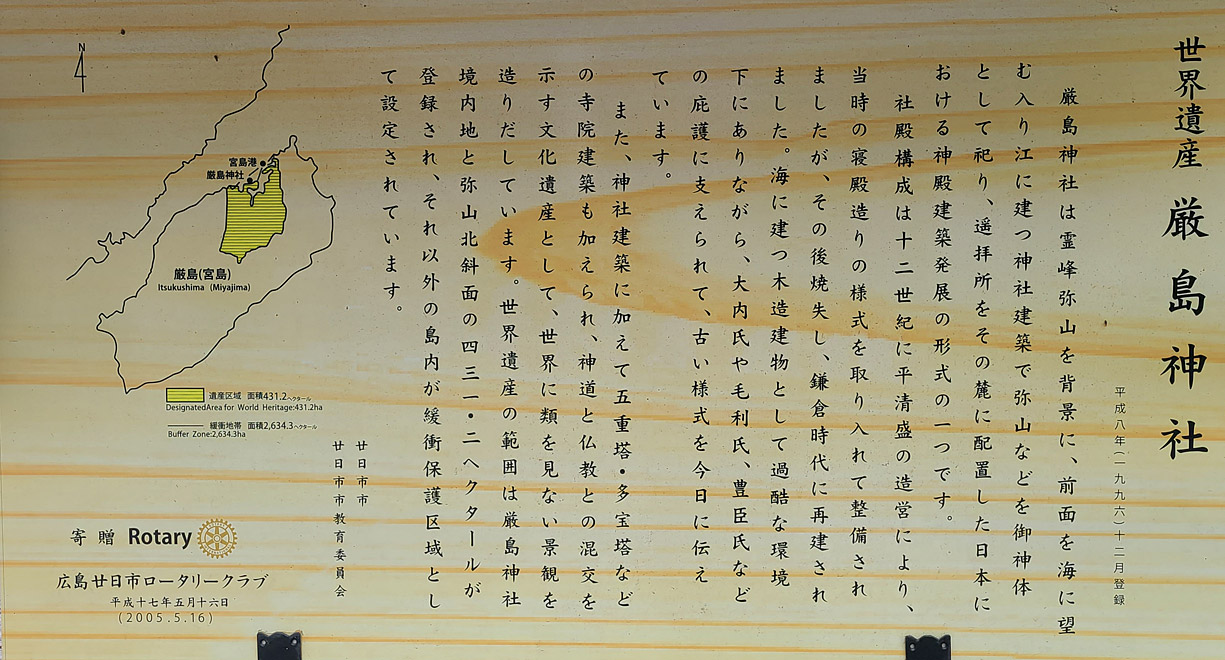 世界遺産 厳島神社
平成八年(一九九六)十二月登録
厳島神社は霊峰弥山を背景に、前面を海に望
む入り江に建つ神社建築で弥山などを御神体
として祀り、遥拝所をその麓に配置した日本に
おける神殿建築発展の形式の一つです。
社殿構成は十二世紀に平清盛の造営により、
当時の寝殿造りの様式を取り入れて整備され
ましたが、その後焼失し、鎌倉時代に再建され
ました。海に建つ木造建物として過酷な環境
下にありながら、大内氏や毛利氏、豊臣氏など
の庇護に支えられて、古い様式を今日に伝え
ています。
また、神社建築に加えて五重塔・多宝塔など
の寺院建築も加えられ、神道と仏教との混交を
示す文化遺産として、世界に類を見ない景観を
造りだしています。世界遺産の範囲は厳島神社
境内地と弥山北斜面の四三一・二ヘクタールが
登録され、それ以外の島内が緩衝保護区域とし
て設定されています。
廿日市市
廿日市市教育委員会
N
宮島港
厳島神社
厳島(宮島)
Itsukushima (Miyajima)
遺産区域 面積431.2ヘクタール
DesignatedArea for World Heritage:431.2ha
緩衝地帯 面積2,634.3ヘクタール
Buffer Zone:2,634.3ha
寄贈 Rotary
広島廿日市ロータリークラブ
平成十七年五月十六日
(2005.5.16)